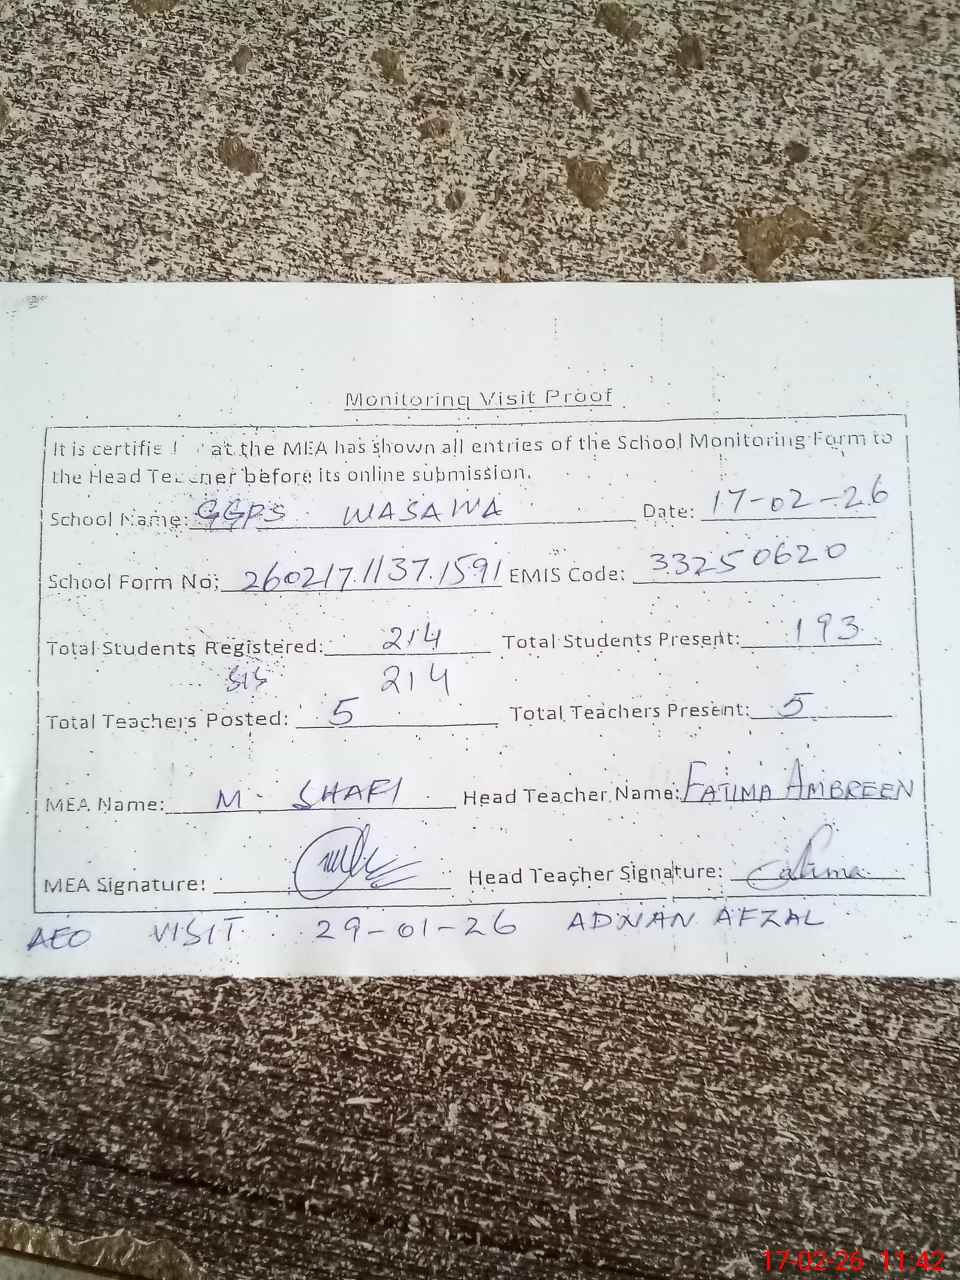 Monitoring Visit Proof
It is certifie at the MEA has shown all entries of the School Monitoring Form to
the Head Teacher before its online submission.
School Name: GGPS WASAWA Date: 17-02-26
School Form No: 260217.1137.1591 EMIS Code: 33250620
Total Students Registered: 214 Total Students Present: 193
SIS 214
Total Teachers Posted: 5 Total Teachers Present: 5
MEA Name: M. SHAFI Head Teacher Name: FATIMA AMBREEN
MEA Signature: Head Teacher Signature: Fatima
AEO VISIT 29-01-26 ADNAN AFZAL
17-02-26 11:42